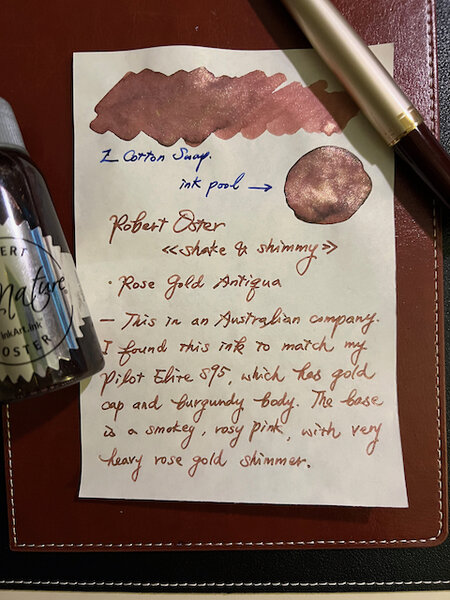 Z Cotton Swap.
ink pool →
Robert Oster
<<shake & shimmy>>
· Rose Gold Antiqua
— This in an Australian company.
I found this ink to match my
Pilot Elite S95, which has gold
cap and burgundy body. The base
is a smokey, rosy pink, with very
heavy rose gold shimmer.
ERT
nature
InkArt.ink
OSTER